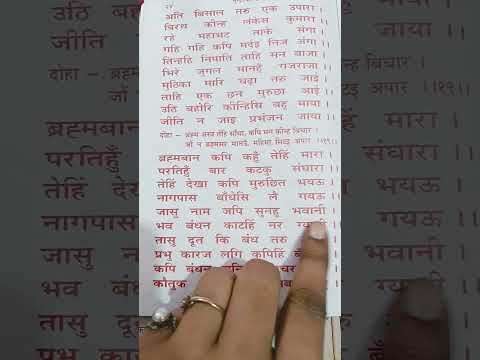 अति बिसाल तरु एक उपारा।
बिरथ कीन्ह लंकेस कुमारा।।
रहे महाभट ताके संगा।
गहि गहि कपि मर्दइ निज अंगा।।
तिन्हहि निपाति ताहि सन बाजा।
भिरे जुगल मानहुँ गजराजा।।
मुठिका मारि चढ़ा तरु जाई।
ताहि एक छन मुरुछा आई।।
उठि बहोरि कीन्हिसि बहु माया।
जीति न जाइ प्रभंजन जाया।।
दोहा – ब्रह्म अस्त्र तेहि साँधा, कपि मन कीन्ह बिचार।
जौं न ब्रह्मसर मानउँ, महिमा मिटइ अपार ।।१९।।
ब्रह्मबान कपि कहुँ तेहिं मारा।
परतिहुँ बार कटकु संघारा।।
तेहिं देखा कपि मुरुछित भयऊ।
नागपास बाँधेसि लै गयऊ।।
जासु नाम जपि सुनहु भवानी।
भव बंधन काटहिं नर ग्यानी
तासु दूत कि बंध तरु
प्रभु कारज लगि कपिहिं
कपि बंधन
कौतुक